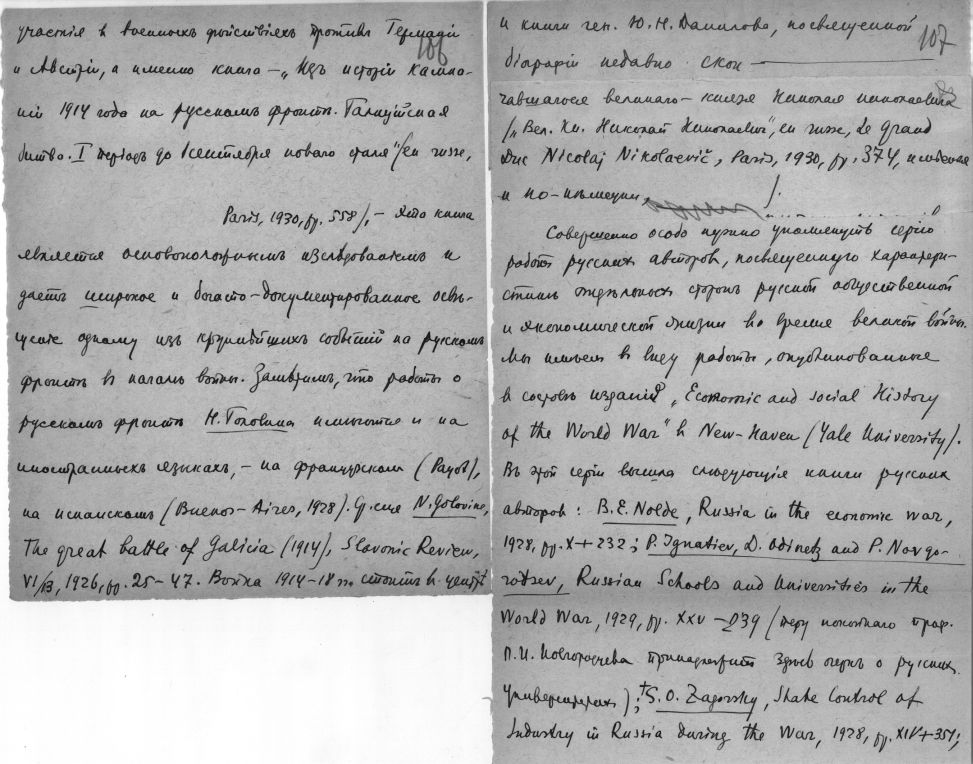 106
участія в военныхъ дѣйствіяхъ противъ Германіи
и Австріи, а именно книга – „Изъ исторіи кампа-
ніи 1914 года на русскомъ фронтѣ. Галиційская
битва. I періодъ до 1 сентября новаго стиля" /en russe,
Paris, 1930, pp. 558/, – Эта книга
является основоположнымъ изслѣдованіемъ и
даетъ широкое и богато-документированное освѣ-
щеніе одному изъ крупнѣйшихъ событій на русскомъ
фронтѣ въ началѣ войны. Замѣтимъ, что работы о
русскомъ фронтѣ Н. Головина имѣются и на
иностранныхъ языкахъ, – на французскомъ (Payot),
на испанскомъ (Buenos-Aires, 1928). Ср. еще N. Golovine,
The great battle of Galicia (1914), Slavonic Review,
VI/13, 1926, pp. 25–47. Война 1914–18 гг. стоитъ въ центрѣ
107
и книги ген. Ю. Н. Данилова, посвященной
біографіи недавно скон-
чавшагося великаго-князя Николая Николаевича
/„Вел. Кн. Николай Николаевич", en russe, Le grand
Duc Nicolaj Nikolaevič, Paris, 1930, pp. 374, имѣется
и по-нѣмецки /.
Совершенно особо нужно упомянуть серію
работъ русскихъ авторовъ, посвященную характери-
стикѣ отдѣльныхъ сторонъ русской общественной
и экономической жизни во время великой войны.
Мы имѣемъ въ виду работы, опубликованные
в составѣ изданія „Economic and social History
of the World War" в New-Haven (Yale University).
Въ этой серіи вышли слѣдующія книги русскихъ
авторовъ: B. E. Nolde, Russia in the economic war,
1928, pp. X+232; P. Ignatiev, D. Odinetz and P. Novgo-
rodtsev, Russian Schools and Universities in the
World War, 1929, pp. XXV–239 (перу покойнаго проф.
П. И. Новгородцева принадлежитъ здѣсь очеркъ о русскихъ
университетахъ); + S. O. Zagorsky, State Control of
Industry in Russia during the War, 1928, pp. XIV+351;